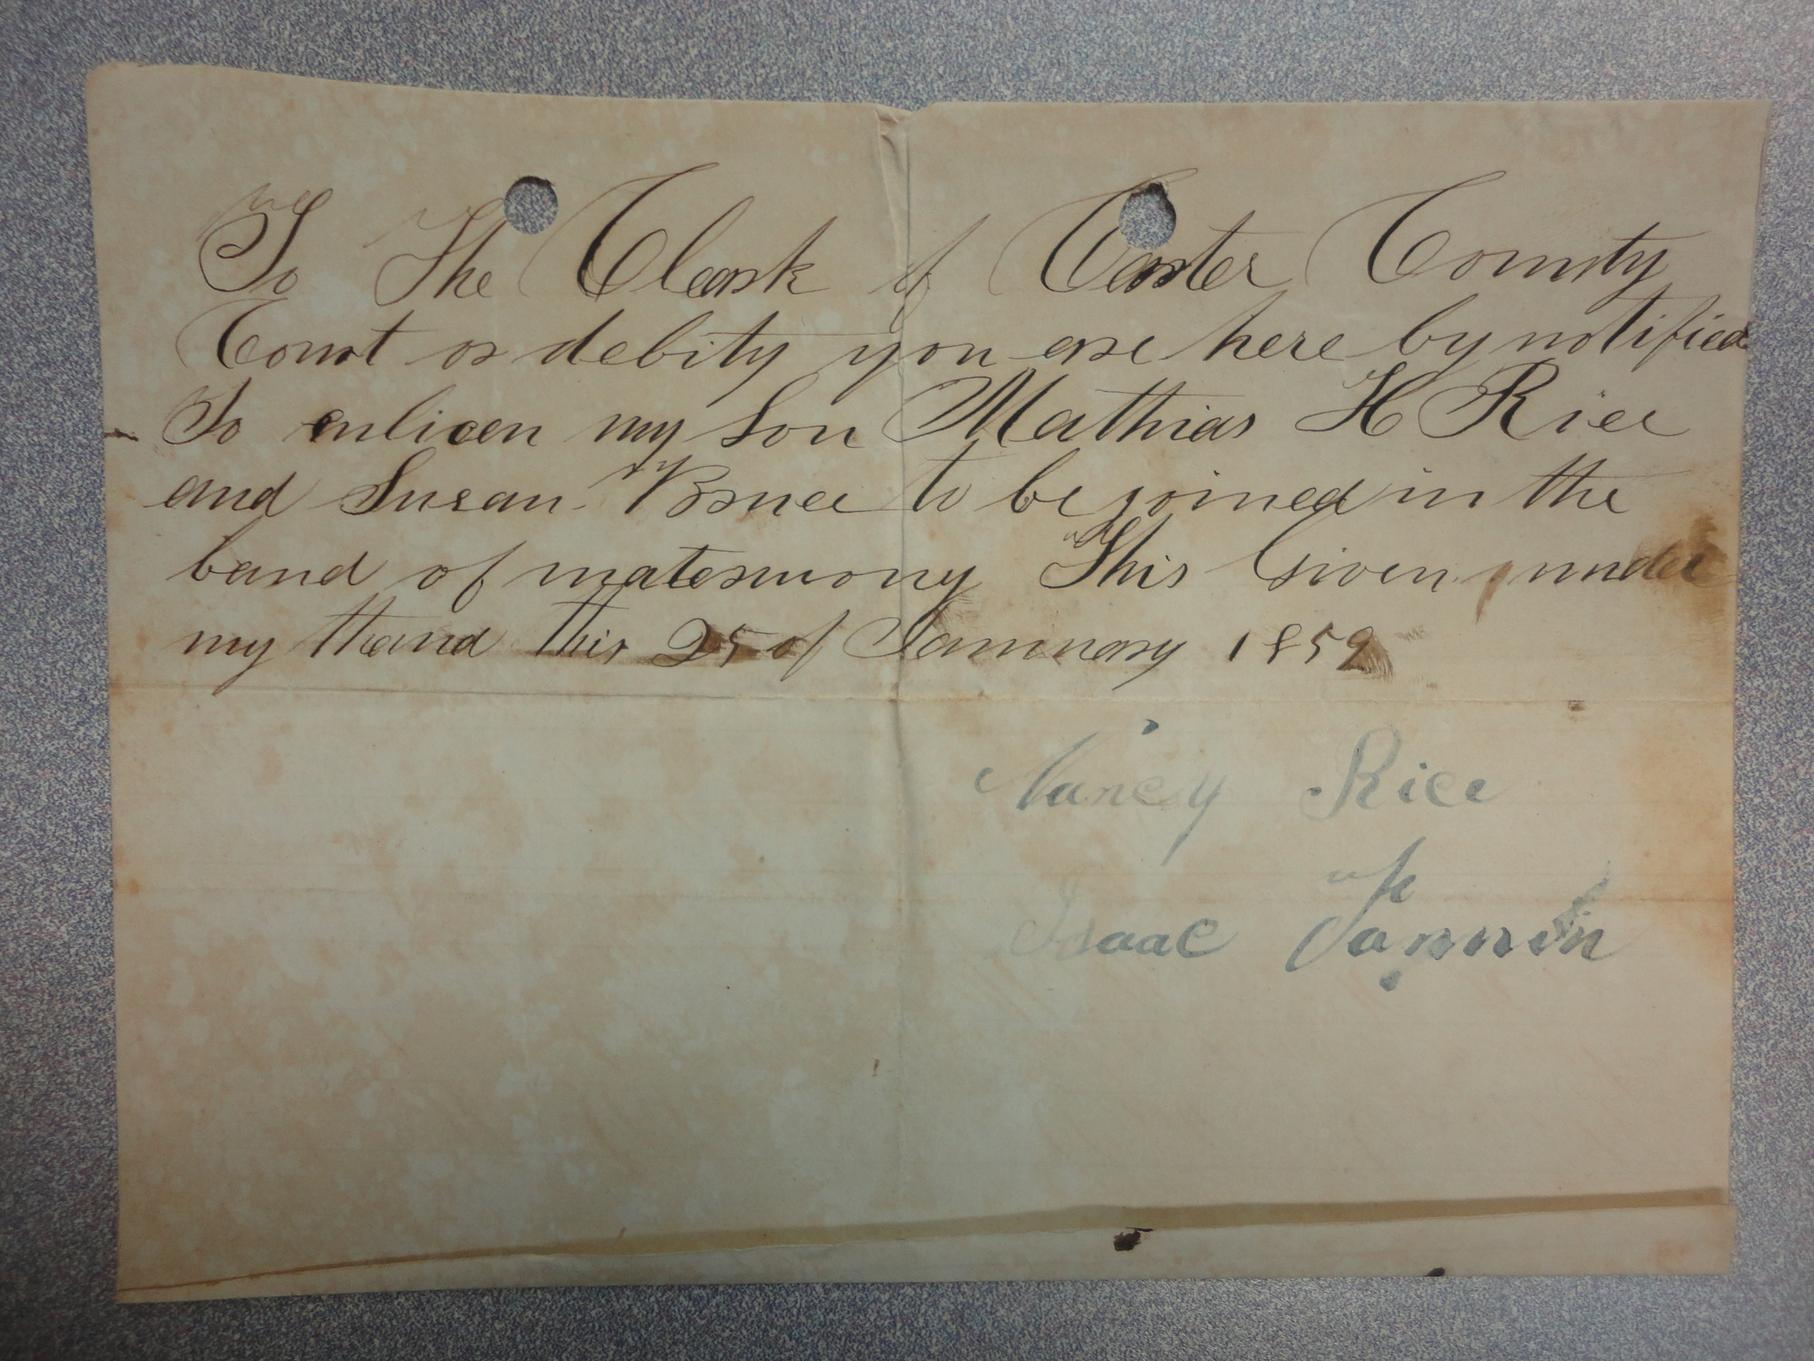 To The Clark of Carter County
Court or debity you are here by notified
To enlicen my Son Mathias H Rice
and Susan Bruce to be joined in the
band of matermony This Given under
my Hand this 25 of Jannuary 1859
Nancy Rice
Isaac Fannin